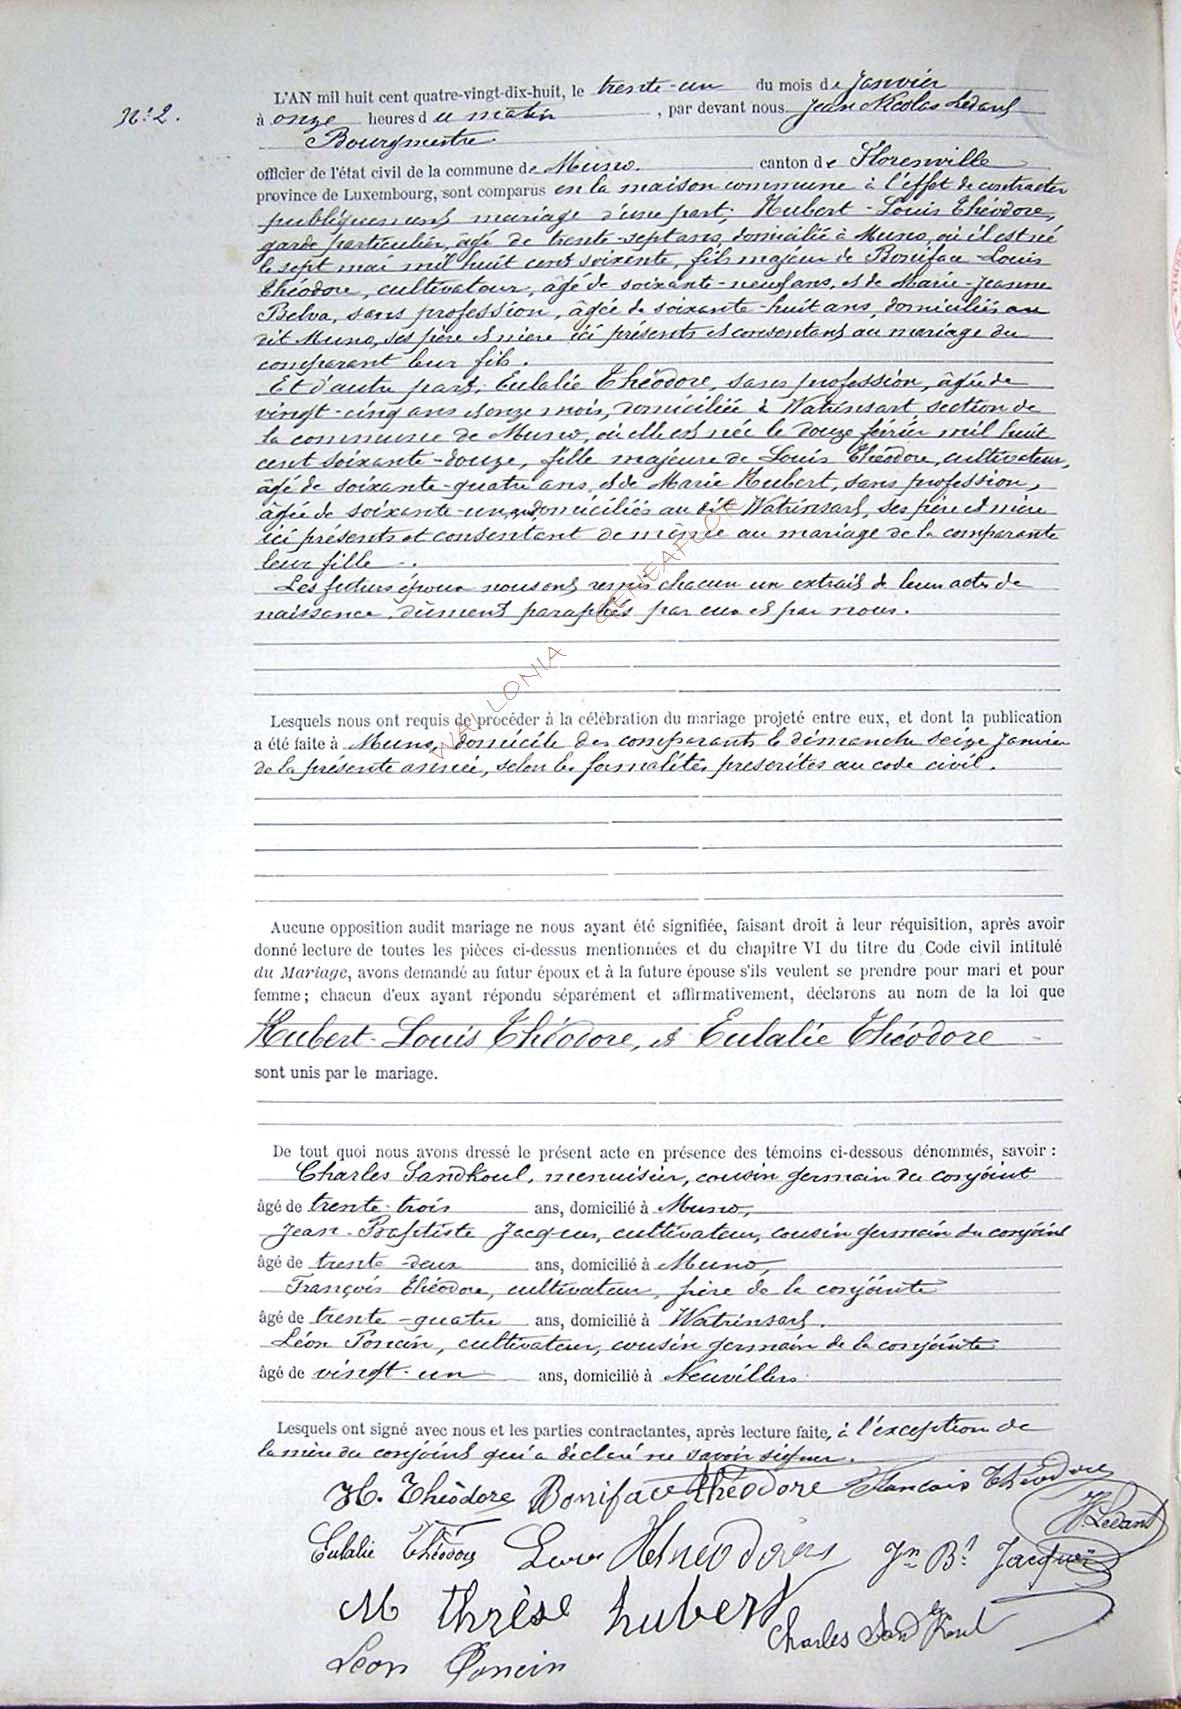 N: 2.
L'AN mil huit cent quatre-vingt-dix-huit, le trente-un du mois de Janvier
à onze heures du matin, par devant nous Jean Nicolas Ledant
Bourgmestre
officier de l'état civil de la commune de Muno. canton de Florenville
province de Luxembourg, sont comparus en la maison commune à l'effet de contracter
publiquement mariage d'une part, Hubert-Louis Théodore,
garde particulier, âgé de trente-sept ans, domicilié à Muno, où il est né
le sept mai mil huit cent soixante, fils majeur de Boniface-Louis
Théodore, cultivateur, âgé de soixante-neuf ans, et de Marie-Jeanne
Belva, sans profession, âgée de soixante-huit ans, domiciliés au
dit Muno, ses père et mère ici présents et consentant au mariage du
comparant leur fils.
Et d'autre part, Eulalie Théodore, sans profession, âgée de
vingt-cinq ans et onze mois, domiciliée à Watrinsart section de
la commune de Muno, où elle est née le douze février mil huit
cent soixante-douze, fille majeure de Louis Théodore, cultivateur,
âgé de soixante-quatre ans, et de Marie Hubert, sans profession,
âgée de soixante-un ans, domiciliés au dit Watrinsart, ses père et mère
ici présents et consentant de même au mariage de la comparante
leur fille.
Les futurs époux nous ont remis chacun un extrait de leur acte de
naissance, dûment paraphés par eux et par nous.
Lesquels nous ont requis de procéder à la célébration du mariage projeté entre eux, et dont la publication
a été faite à Muno, domicile des comparants le dimanche seize Janvier
de la présente année, selon les formalités prescrites au code civil.
Aucune opposition audit mariage ne nous ayant été signifiée, faisant droit à leur réquisition, après avoir
donné lecture de toutes les pièces ci-dessus mentionnées et du chapitre VI du titre du Code civil intitulé
du Mariage, avons demandé au futur époux et à la future épouse s'ils veulent se prendre pour mari et pour
femme ; chacun d'eux ayant répondu séparément et affirmativement, déclarons au nom de la loi que
Hubert-Louis Théodore, et Eulalie Théodore
sont unis par le mariage.
De tout quoi nous avons dressé le présent acte en présence des témoins ci-dessous dénommés, savoir :
Charles Sandkoul, menuisier, cousin germain du conjoint
âgé de trente-trois ans, domicilié à Muno,
Jean-Baptiste Jacques, cultivateur, cousin germain du conjoint
âgé de trente-deux ans, domicilié à Muno,
François Théodore, cultivateur, frère de la conjointe
âgé de trente-quatre ans, domicilié à Watrinsart.
Léon Poncin, cultivateur, cousin germain de la conjointe
âgé de vingt-un ans, domicilié à Neuvillers
Lesquels ont signé avec nous et les parties contractantes, après lecture faite, à l'exception de
la mère du conjoint qui a déclaré ne savoir signer.
H. Théodore Boniface théodore Francois Théodore
Ledant
Eulalie Théodore Louis Théodore Jn Bt Jacques
M thrèse hubert
Charles Sandkoul
Léon Poncin
WALLONIA GENEAFLOR